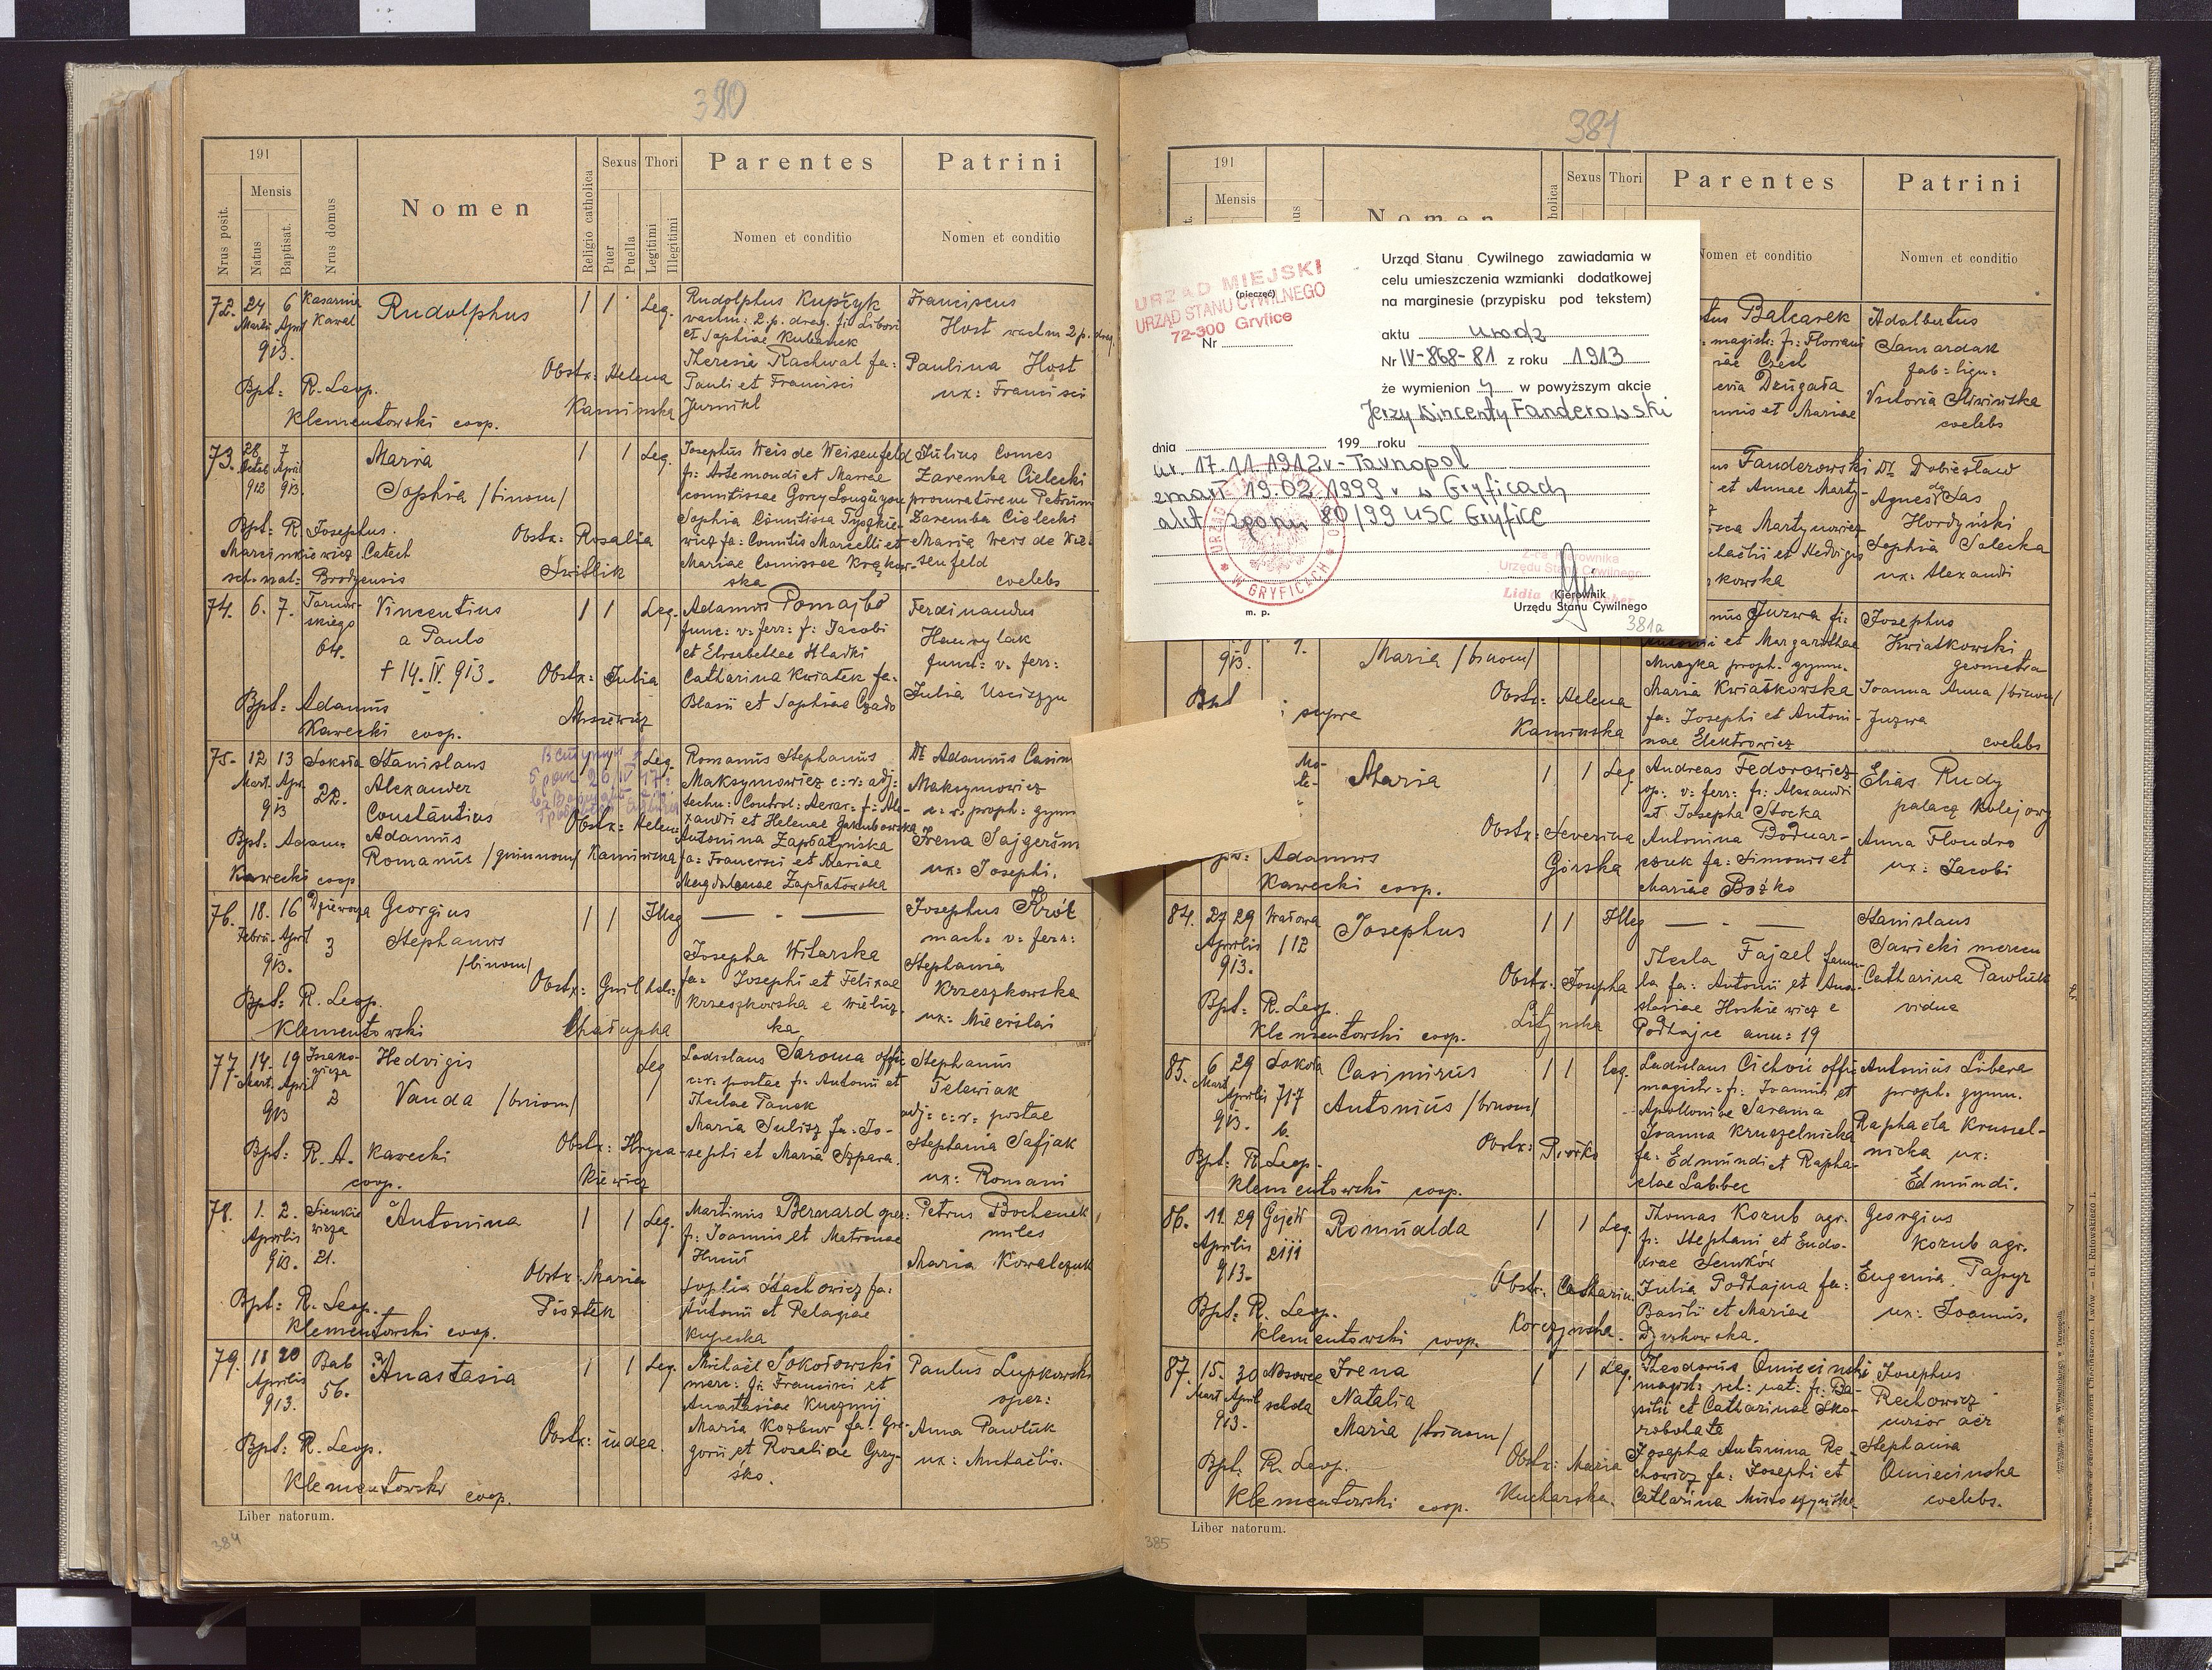 380
191
Mensis
Nrus posit.
Natus
Baptisat.
Nrus domus
Nomen
Religio catholica
Sexus
Puer
Puella
Thori
Legitimi
Illegitimi
Parentes
Nomen et conditio
Patrini
Nomen et conditio
72. 24 6 Kasarnia Rudolphus 1 1 Leg. Rudolphus Kupžyk Franciscus
Martii April Kawal wachm: 2. p. drag. fi: Libori Host wachm 2 p. drag.
913. et Sophiae Kubanek
Obstx: Helena Theresia Rachwal fa: Paulina Host
Bpt: R. Leop. Kaminska Pauli et Francisci ux: Francisci
Klementowski coop. Jurnikl
73. 28 7 Maria 1 1 Leg. Josephus Weis de Weisenfeld Julius Comes
April Sophia /binom/ fi: Artemondi et Mariae Zaremba Cielecki
912 913. comitissae procuratorem Petrum
Bpt: R. Josephus Obstx: Rosalia Sophia Comitissa Tyszkie- Zaremba Cielecki
Marcinkiewicz Catech Switlik wicz fa: Comitis Marcelli et Maria Weis de Wei-
Brodzensis Mariae senfeld
ska coelebs
74. 6. 7. Tarnow- Vincentius 1 1 Leg. Adamus Pomajbo Ferdinandus
skiego a Paulo func: v: ferr: f: Jacobi Hawrylak
64. et Elisabethae Hladki funct: v. ferr:
† 14. IV. 913. Obstx: Julia Catharina Kwiatek fa:
Bpt: Adamus Blasii et Sophiae Czado Julia
Kawecki coop.
75. 12 13 Sokoła Stanislaus Leg. Romanus Stephanus Dr Adamus Casim
Mart. Apr. Alexander Maksymowicz c: r: adj: Maksymowicz
913 22. Constantius techn: Control: Aerar: f: Ale- proph: gymn
Bpt: Adam: Adamus Obstx: Helena xandri et Helenae Jakubowska
Kawecki coop Romanus /quinnom/ Kaminska Antonina Zapłatyńska Irena
fa: Francisci et Mariae ux: Josephi.
Magdalenae Zapłatowska
76. 18. 16 Georgius 1 1 Illeg — - — Josephus Król
Febru- April Stephanus mach: v: ferr:
913. 3 /binom/ Josepha Witarska Stephania
Obstx: fa: Josephi et Felixae Krzeszkowska
Bpt: R. Leop. Chałupka Krzeszkowska e Wielicz- ux: Miecislai
Klementowski ka
77. 14. 19 Hedvigis Leg Ladislaus Saroma offi: Stephanus
Mart. April Vanda /binom/ c: r: postae f: Antonii et Telewiak
913 2 Theclae Panek adj: c: r: postae
Bpt: R. A. Kawecki Obstx: Hryca- Maria Sulisz fa: Jo- Stephania Safjak
coop. kiewicz sephi et Maria Szpara. ux: Romani
78. 1. 2. Sienkie Antonina 1 1 Leg. Martinus Bernard oper: Petrus Bochenek
Aprilis wicza f: Joannis et Matronae miles
913. 21. Maria Kowalczuk
Obstx: Maria Sophia Stachowicz fa:
Bpt: R. Leop. Antonii et Pelagiae
Klementowski coop.
79. 18 20 Bab Anastasia 1 1 Leg. Michaël Sokołowski Paulus Lupkowski
Aprilis 56. merc: fi: Francisci et oper:
913. Anastasiae Kuzmij
Bpt: R. Leop. Obstx: iudea. Maria Korbuw fa: Gre- Anna Pawluk
Klementowski coop. gorii et Rosaliae Grzy- ux: Michaëlis.
śko.
Liber natorum.
384
381
191
Mensis
Nomen
Sexus
Thori
Parentes
Nomen et conditio
Patrini
Nomen et conditio
URZĄD MIEJSKI
(pieczęć)
URZĄD STANU CYWILNEGO
72-300 Gryfice
Nr
Urząd Stanu Cywilnego zawiadamia w
celu umieszczenia wzmianki dodatkowej
na marginesie (przypisku pod tekstem)
aktu urodz
Nr IV-868-81 z roku 1913
że wymienion y w powyższym akcie
Jerzy Wincenty Fanderowski
dnia 199 roku
ur. 17.11.1912 r - Tarnopol
zmarł 19.02.1999 r w Gryficach
akt zgonu 80/99 USC Gryfice
W GRYFICACH
Z-ca Kierownika
Urzędu Stanu Cywilnego
Lidia
Kierownik
Urzędu Stanu Cywilnego
m. p.
381a
Balcarek Adalbertus
magistr: fi: Floriani Samardak
Czech
Victoria Śliwińska
et Mariae coelebs
Fanderowski Dr Dobiesław
et Annae Marty- Agnes de Las
Martynowicz Hordyński
et Hedvigis Sophia Solecka
kowska ux: Alexandri
Juzwa fi: Josephus
et Margarithae Kwiatkowski
913. Maria /binom/ Muzyka proph. gymn. geometra
Obstx: Helena Maria Kwiatkowska Joanna Anna /binom/
Bpt supra Kaminska fa: Josephi et Antoni- Juzwa
nae Elektrowicz coelebs
Maria 1 1 Leg Andreas Fedorowicz Elias Rudy
op: v: ferr: fi: Alexandri palacz kolejowy
et Josepha Stocka
Obstx: Severina Antonina Bodnar- Anna Flondro
Adamus Górska czuk fa: Simonis et ux: Jacobi
Kawecki coop. Mariae Bożko
84. 27 29 Wałowa Josephus 1 1 Illeg — - — Stanislaus
Aprilis 112 Sawicki mercen
913. Thecla Fajael famu- Catharina Pawluk
Obstx: Josepha la fa: Antonii et Ana- vidua
Bpt: R. Leop. stasiae Hoskiewicz e
Klementowski coop. Podhajce ann: 19
85. 6 29 Sokoła Casimirus 1 1 leg. Ladislaus Cichoń offi: Antonius Libera
Mart Aprilis 717 Antonius /binom/ magistr: f: Joannis et proph. gymn.
913. b. Apolloniae Sarama
Obstx: Piórko Joanna Kruszelnicka Raphaëla Kruszel-
Bpt: R. Leop. fa: Edmundi et Rapha- nicka ux:
Klementowski coop. elae Edmundi.
86. 11. 29 Romualda 1 1 Leg. Thomas Kozub agr. Georgius
Aprilis f: Stephani et Eudo- Kozub agr.
913. xiae Senków
Obstx: Catharin. Julia Podhajna fa: Eugenia
Bpt: R. Leop. Korczynska. Basilii et Mariae ux: Joannis.
Klementowski coop. Dyrkowska.
87. 15. 30 Irena 1 1 Leg. Theodorus Omiecinski Josephus
Mart April schola Natalia magist: f: Ba- Rechowicz
913. Maria /trinom/ silii et Catharinae Sko- cursor aer
robohata
Bpt: R. Leop. Obstx: Maria Josepha Antonina Re- Stephania
Klementowski coop. Kucharska. chowicz fa: Josephi et Omiecinska
Catharina coelebs.
Liber natorum.
385